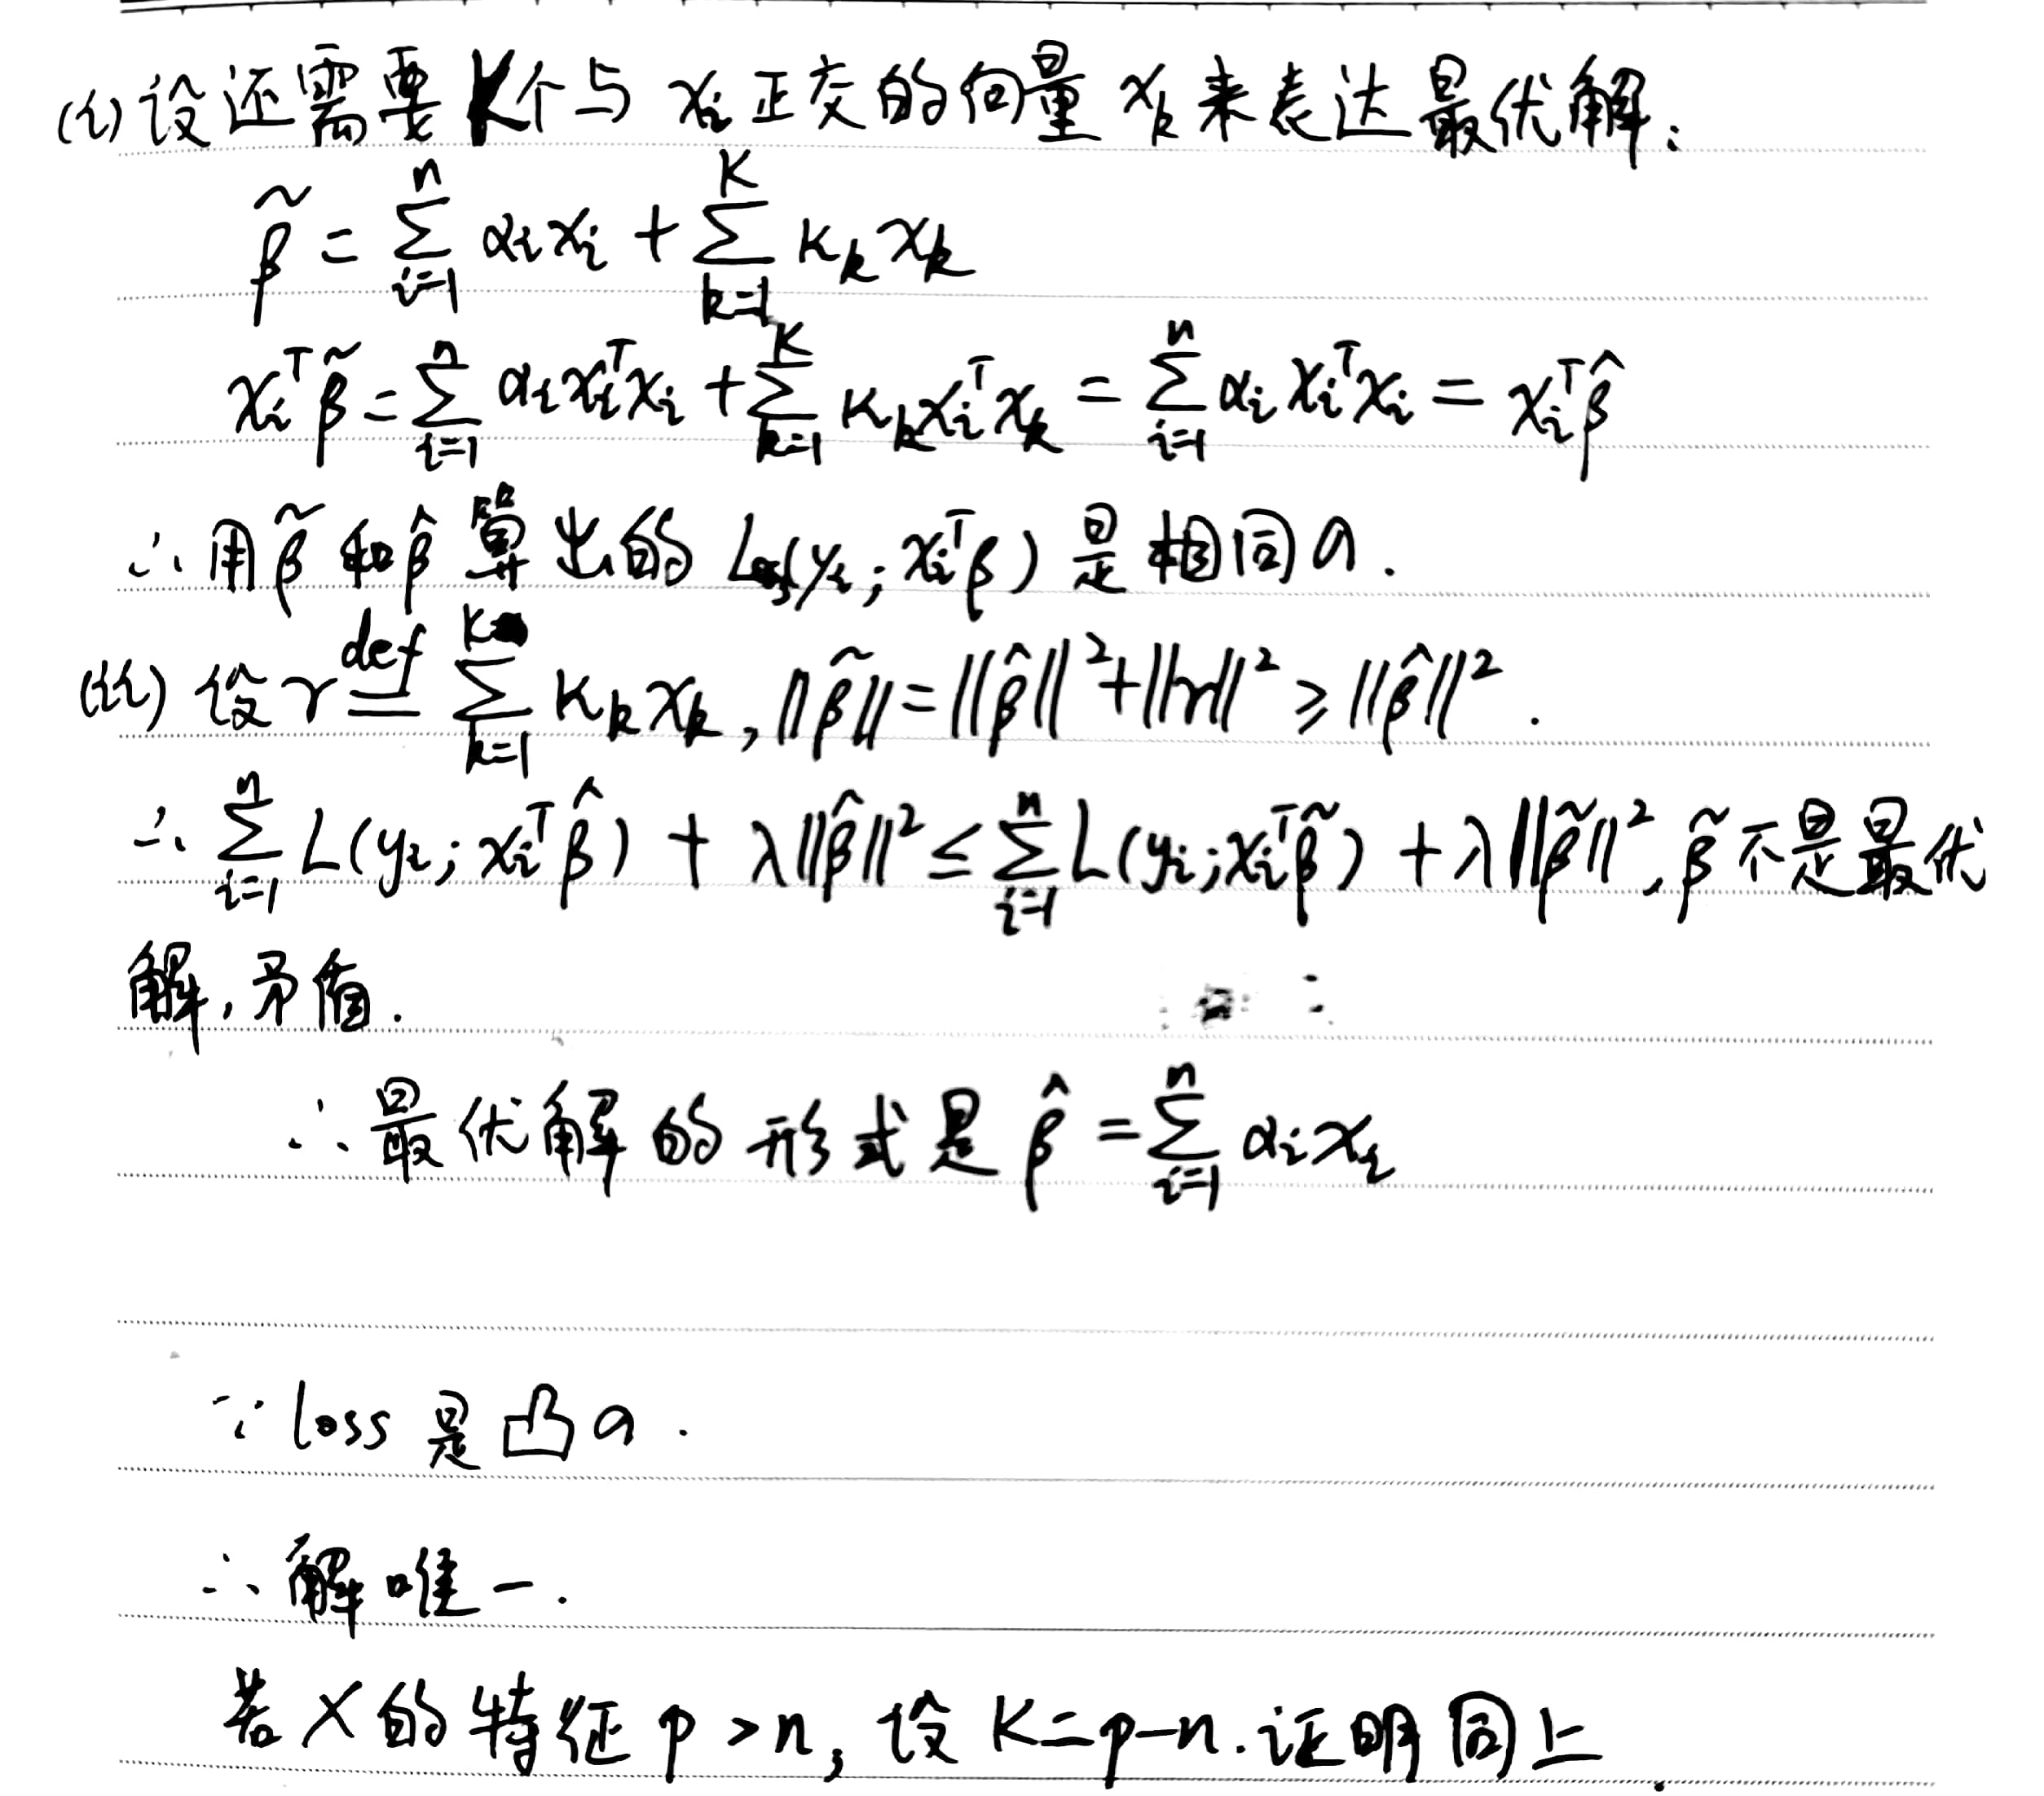 (i) 设还需要K个与 xᵢ 正交的向量 xₖ 来表达最优解:
β̃ = ∑ᵢ₌₁ⁿ αᵢxᵢ + ∑ₖ₌₁ᴷ κₖxₖ
xᵢᵀβ̃ = ∑ᵢ₌₁ⁿ αᵢxᵢᵀxᵢ + ∑ₖ₌₁ᴷ κₖxᵢᵀxₖ = ∑ᵢ₌₁ⁿ αᵢxᵢᵀxᵢ = xᵢᵀβ̂
∴ 用β̃ 和β̂ 算出的 L(yᵢ; xᵢᵀβ) 是相同の.
(ii) 设 r ≝ ∑ₖ₌₁ᴷ κₖxₖ, ‖β̃‖ = ‖β̂‖² + ‖r‖² ≥ ‖β̂‖².
∴ ∑ᵢ₌₁ⁿ L(yᵢ; xᵢᵀβ̂) + λ‖β̂‖² ≤ ∑ᵢ₌₁ⁿ L(yᵢ; xᵢᵀβ̃) + λ‖β̃‖², β̃ 不是最优
解, 矛盾.
∴ 最优解的形式是 β̂ = ∑ᵢ₌₁ⁿ αᵢxᵢ
∵ loss 是凸の.
∴ 解唯一.
若 X 的特征 p > n, 设 K = p-n. 证明同上.